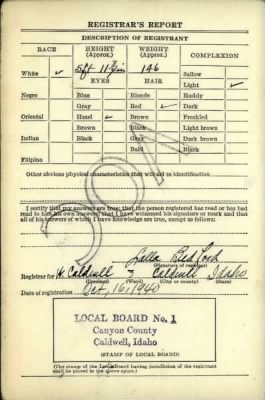 REGISTRAR'S REPORT
DESCRIPTION OF REGISTRANT
RACE HEIGHT (Approx.) WEIGHT (Approx.) COMPLEXION
White ✓ 5ft 11 146 Sallow
EYES HAIR Light ✓
Negro Blue Blonde Ruddy
Gray Red ✓ Dark
Oriental Hazel ✓ Brown Freckled
Brown Black Light brown
Indian Black Gray Dark brown
Bald Black
Filipino
Other obvious physical characteristics that will aid in identification
I certify that my answers are true; that the person registered has read or has had
read to him his own answers; that I have witnessed his signature or mark and that
all of his answers of which I have knowledge are true, except as follows:
(Signature of registrar)
Registrar for W. Caldwell 3 Caldwell Idaho
(Precinct) (Ward) (City or county) (State)
Date of registration Oct. 16, 1940
LOCAL BOARD No. 1
Canyon County
Caldwell, Idaho
(STAMP OF LOCAL BOARD)
(The stamp of the Local Board having jurisdiction of the registrant
shall be placed in the above space.)